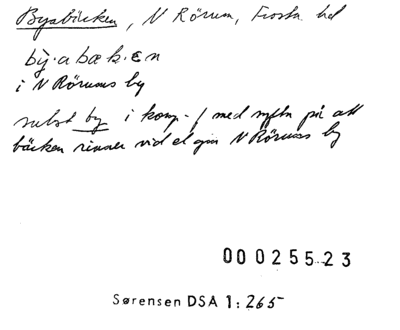 Byabäcken, N Rörum, Frosta hd
by·abæk·ɛn
i N Rörums by
subst by i komp.-f med syftn på att
bäcken rinner vid el gm N Rörums by
00025523
Sørensen DSA 1:265